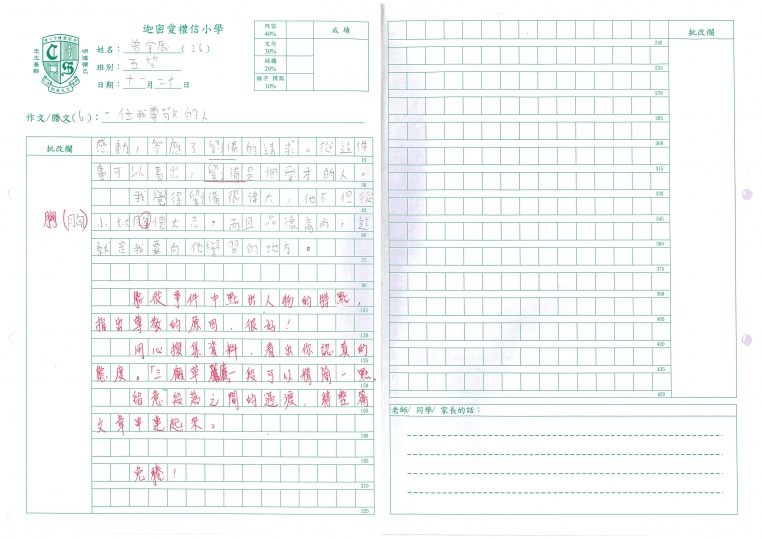 迦密愛禮信小學
明道律己
忠主善群
姓名：曾宇辰(26)
班別：五望
日期：十一月二十日
內容 40%
文句 30%
結構 20%
錯字 標點 10%
成績
作文/謄文(6)：一位我尊敬的人
批改欄
感動，答應了劉備的請求。從這件
15
事可以看出，劉備是個愛才的人。
30
我覺得劉備很偉大，他不但從
45
胸(胸)
小就胸懷大志，而且品德高尚，這
60
就是我要向他學習的地方。
75
90
能從事件中點出人物的特點，
105
指出尊敬的原因，很好！
120
用心搜集資料，看出你認真的
135
態度。「三顧草廬」一段可以精簡一點。
150
留意段落之間的過渡，將整篇
165
文章串連起來。
180
195
免謄！
210
225
批改欄
240
255
270
285
300
315
330
345
360
375
390
405
420
435
450
老師/ 同學/ 家長的話：